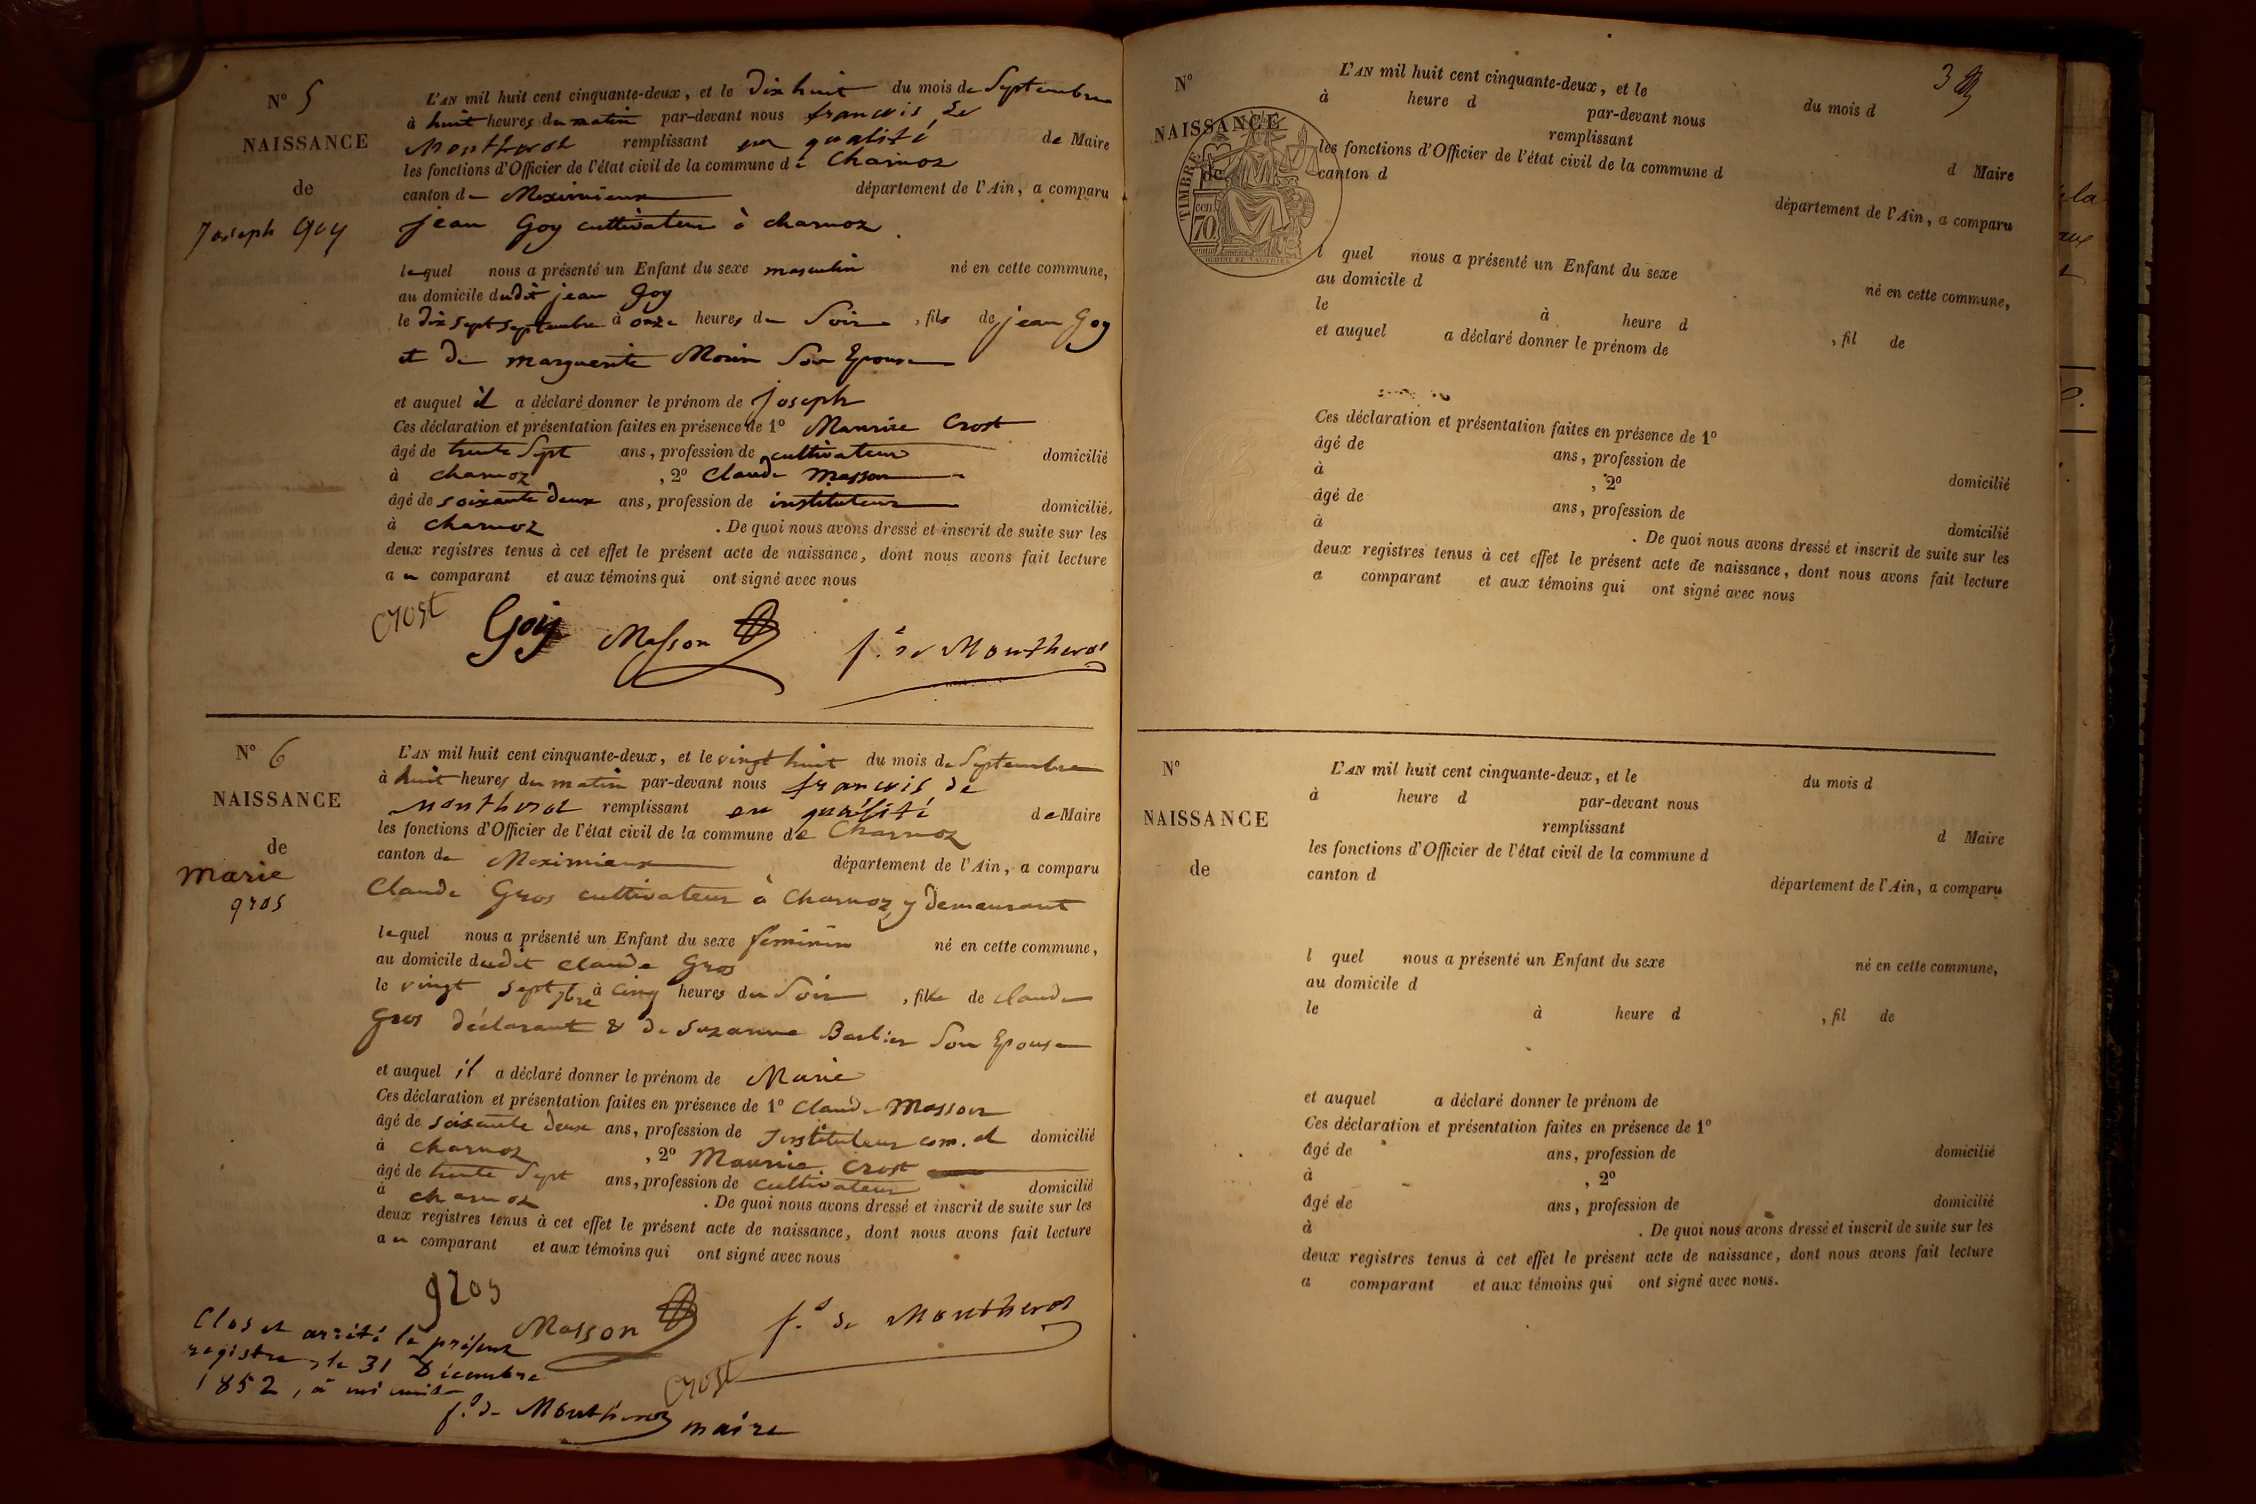 N° 5
NAISSANCE
de
Joseph Goy
L'AN mil huit cent cinquante-deux, et le dix huit du mois de Septembre
à huit heures du matin par-devant nous françois de
Montherot remplissant en qualité de Maire
les fonctions d'Officier de l'état civil de la commune de Charnoz
canton de Meximieux département de l'Ain, a comparu
jean Goy cultivateur à charnoz
lequel nous a présenté un Enfant du sexe masculin né en cette commune,
au domicile dudit jean Goy
le dix sept septembre à onze heures du Soir, fils de jean Goy
et de marguerite Morin Son Epouse
et auquel il a déclaré donner le prénom de joseph
Ces déclaration et présentation faites en présence de 1° Maurice Crost
âgé de trente Sept ans, profession de cultivateur domicilié
à charnoz, 2° Claude Masson
âgé de soixante deux ans, profession de instituteur domicilié.
à charnoz. De quoi nous avons dressé et inscrit de suite sur les
deux registres tenus à cet effet le présent acte de naissance, dont nous avons fait lecture
au comparant et aux témoins qui ont signé avec nous
crost Goy Masson f.s de Montherot
N° 6
NAISSANCE
de
marie
gros
L'AN mil huit cent cinquante-deux, et le vingt huit du mois de Septembre
à huit heures du matin par-devant nous françois de
Montherot remplissant en qualité de Maire
les fonctions d'Officier de l'état civil de la commune de Charnoz
canton de Meximieux département de l'Ain, a comparu
Claude Gros cultivateur à Charnoz y demeurant
lequel nous a présenté un Enfant du sexe feminin né en cette commune,
au domicile dudit claude Gros
le vingt sept 7bre à cinq heures du Soir, fille de claude
Gros déclarant & de Suzanne Barbier Son Epouse
et auquel il a déclaré donner le prénom de Marie
Ces déclaration et présentation faites en présence de 1° Claude Masson
âgé de soixante deux ans, profession de Instituteur com.al domicilié
à charnoz, 2° Maurice Crost
âgé de trente Sept ans, profession de cultivateur domicilié
à charnoz. De quoi nous avons dressé et inscrit de suite sur les
deux registres tenus à cet effet le présent acte de naissance, dont nous avons fait lecture
au comparant et aux témoins qui ont signé avec nous
gros Masson f.s de Montherot
crost
Clos et arrêté le présent
registre, le 31 décembre
1852, à minuit
f.s de Montherot maire
3
N°
NAISSANCE
de
TIMBRE
cen
70
L'AN mil huit cent cinquante-deux, et le du mois d
à heure d par-devant nous
remplissant d Maire
les fonctions d'Officier de l'état civil de la commune d
canton d département de l'Ain, a comparu
l quel nous a présenté un Enfant du sexe né en cette commune,
au domicile d
le à heure d, fil de
et auquel a déclaré donner le prénom de
Ces déclaration et présentation faites en présence de 1°
âgé de ans, profession de domicilié
à, 2°
âgé de ans, profession de domicilié
à. De quoi nous avons dressé et inscrit de suite sur les
deux registres tenus à cet effet le présent acte de naissance, dont nous avons fait lecture
a comparant et aux témoins qui ont signé avec nous
N°
NAISSANCE
de
L'AN mil huit cent cinquante-deux, et le du mois d
à heure d par-devant nous
remplissant d Maire
les fonctions d'Officier de l'état civil de la commune d
canton d département de l'Ain, a comparu
l quel nous a présenté un Enfant du sexe né en cette commune,
au domicile d
le à heure d, fil de
et auquel a déclaré donner le prénom de
Ces déclaration et présentation faites en présence de 1°
âgé de ans, profession de domicilié
à, 2°
âgé de ans, profession de domicilié
à. De quoi nous avons dressé et inscrit de suite sur les
deux registres tenus à cet effet le présent acte de naissance, dont nous avons fait lecture
a comparant et aux témoins qui ont signé avec nous.